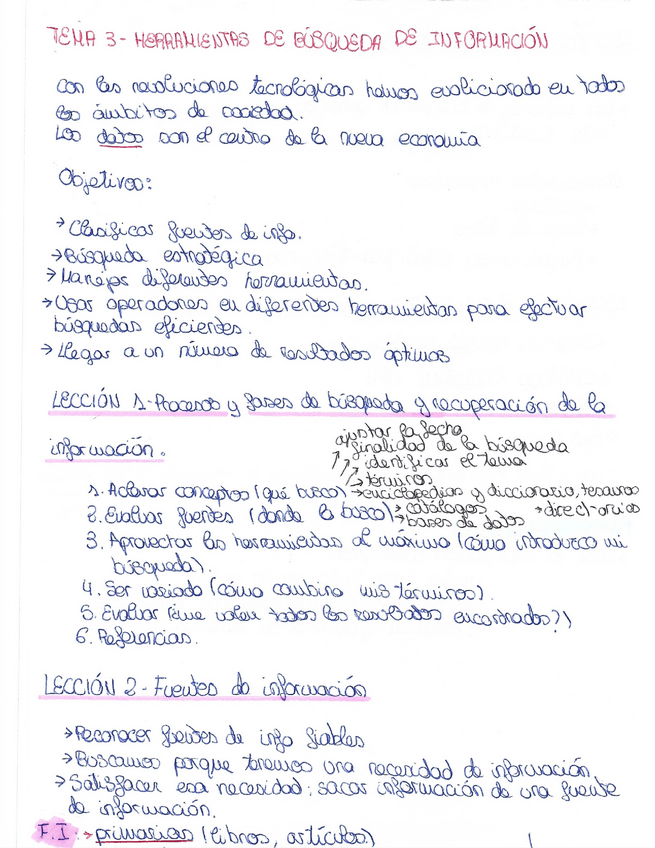 TEMA 3- HERRAMIENTAS DE BÚSQUEDA DE INFORMACIÓN
Con las revoluciones tecnológicas hemos evolicionado en todos
los ámbitos de sociedad.
Los datos son el centro de la nueva economía
Objetivos:
→ Clasificar fuentes de info.
→ Búsqueda estratégica
→ Manejo diferentes herramientas.
→ Usar operadores en diferentes herramientas para efectuar
búsquedas eficientes.
→ Llegar a un número de resultados óptimos
LECCIÓN 1-Procesos y fases de búsqueda y recuperación de la
información.
ajustar la fecha
finalidad de la búsqueda
identificar el tema
términos
1. Aclarar conceptos (qué busco) → enciclopedias y diccionario, tesauros
2. Evaluar fuentes (donde lo busco) → catálogos → directorios
→ bases de datos
3. Aprovechar las herramientas al máximo (cómo introduzco mi
búsqueda).
4. Ser variado (cómo combino mis términos).
5. Evaluar (me valen todos los resultados encontrados?)
6. Referencias.
LECCIÓN 2- Fuentes de información
→ Reconocer fuentes de info fiables
→ Buscamos porque tenemos una necesidad de información
→ Satisfacer esa necesidad: sacar información de una fuente
de información.
F.I: → primarias (libros, artículos)